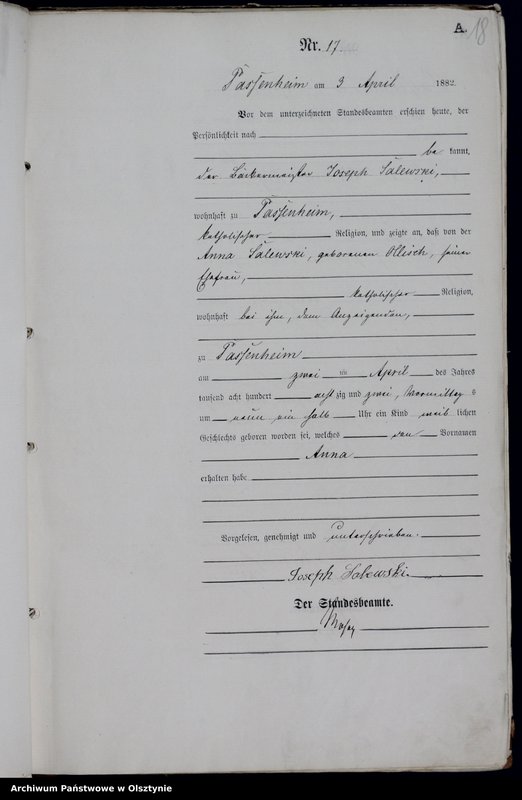 A. 18
Nr. 17.
Passenheim am 3 April 1882.
Vor dem unterzeichneten Standesbeamten erschien heute, der
Persönlichkeit nach
be kannt,
der Bäckermeister Joseph Salewski,
wohnhaft zu Passenheim,
katholischer Religion, und zeigte an, daß von der
Anna Salewski, geborenen Ollisch, seiner
Ehefrau,
katholischer Religion,
wohnhaft bei ihm, dem Anzeigenden,
zu Passenheim
am zwei ten April des Jahres
tausend acht hundert acht zig und zwei, Vormittag s
um neun ein halb Uhr ein Kind weib lichen
Geschlechts geboren worden sei, welches den Vornamen
Anna
erhalten habe
Vorgelesen, genehmigt und unterschrieben.
Joseph Salewski.
Der Standesbeamte.
Archiwum Państwowe w Olsztynie